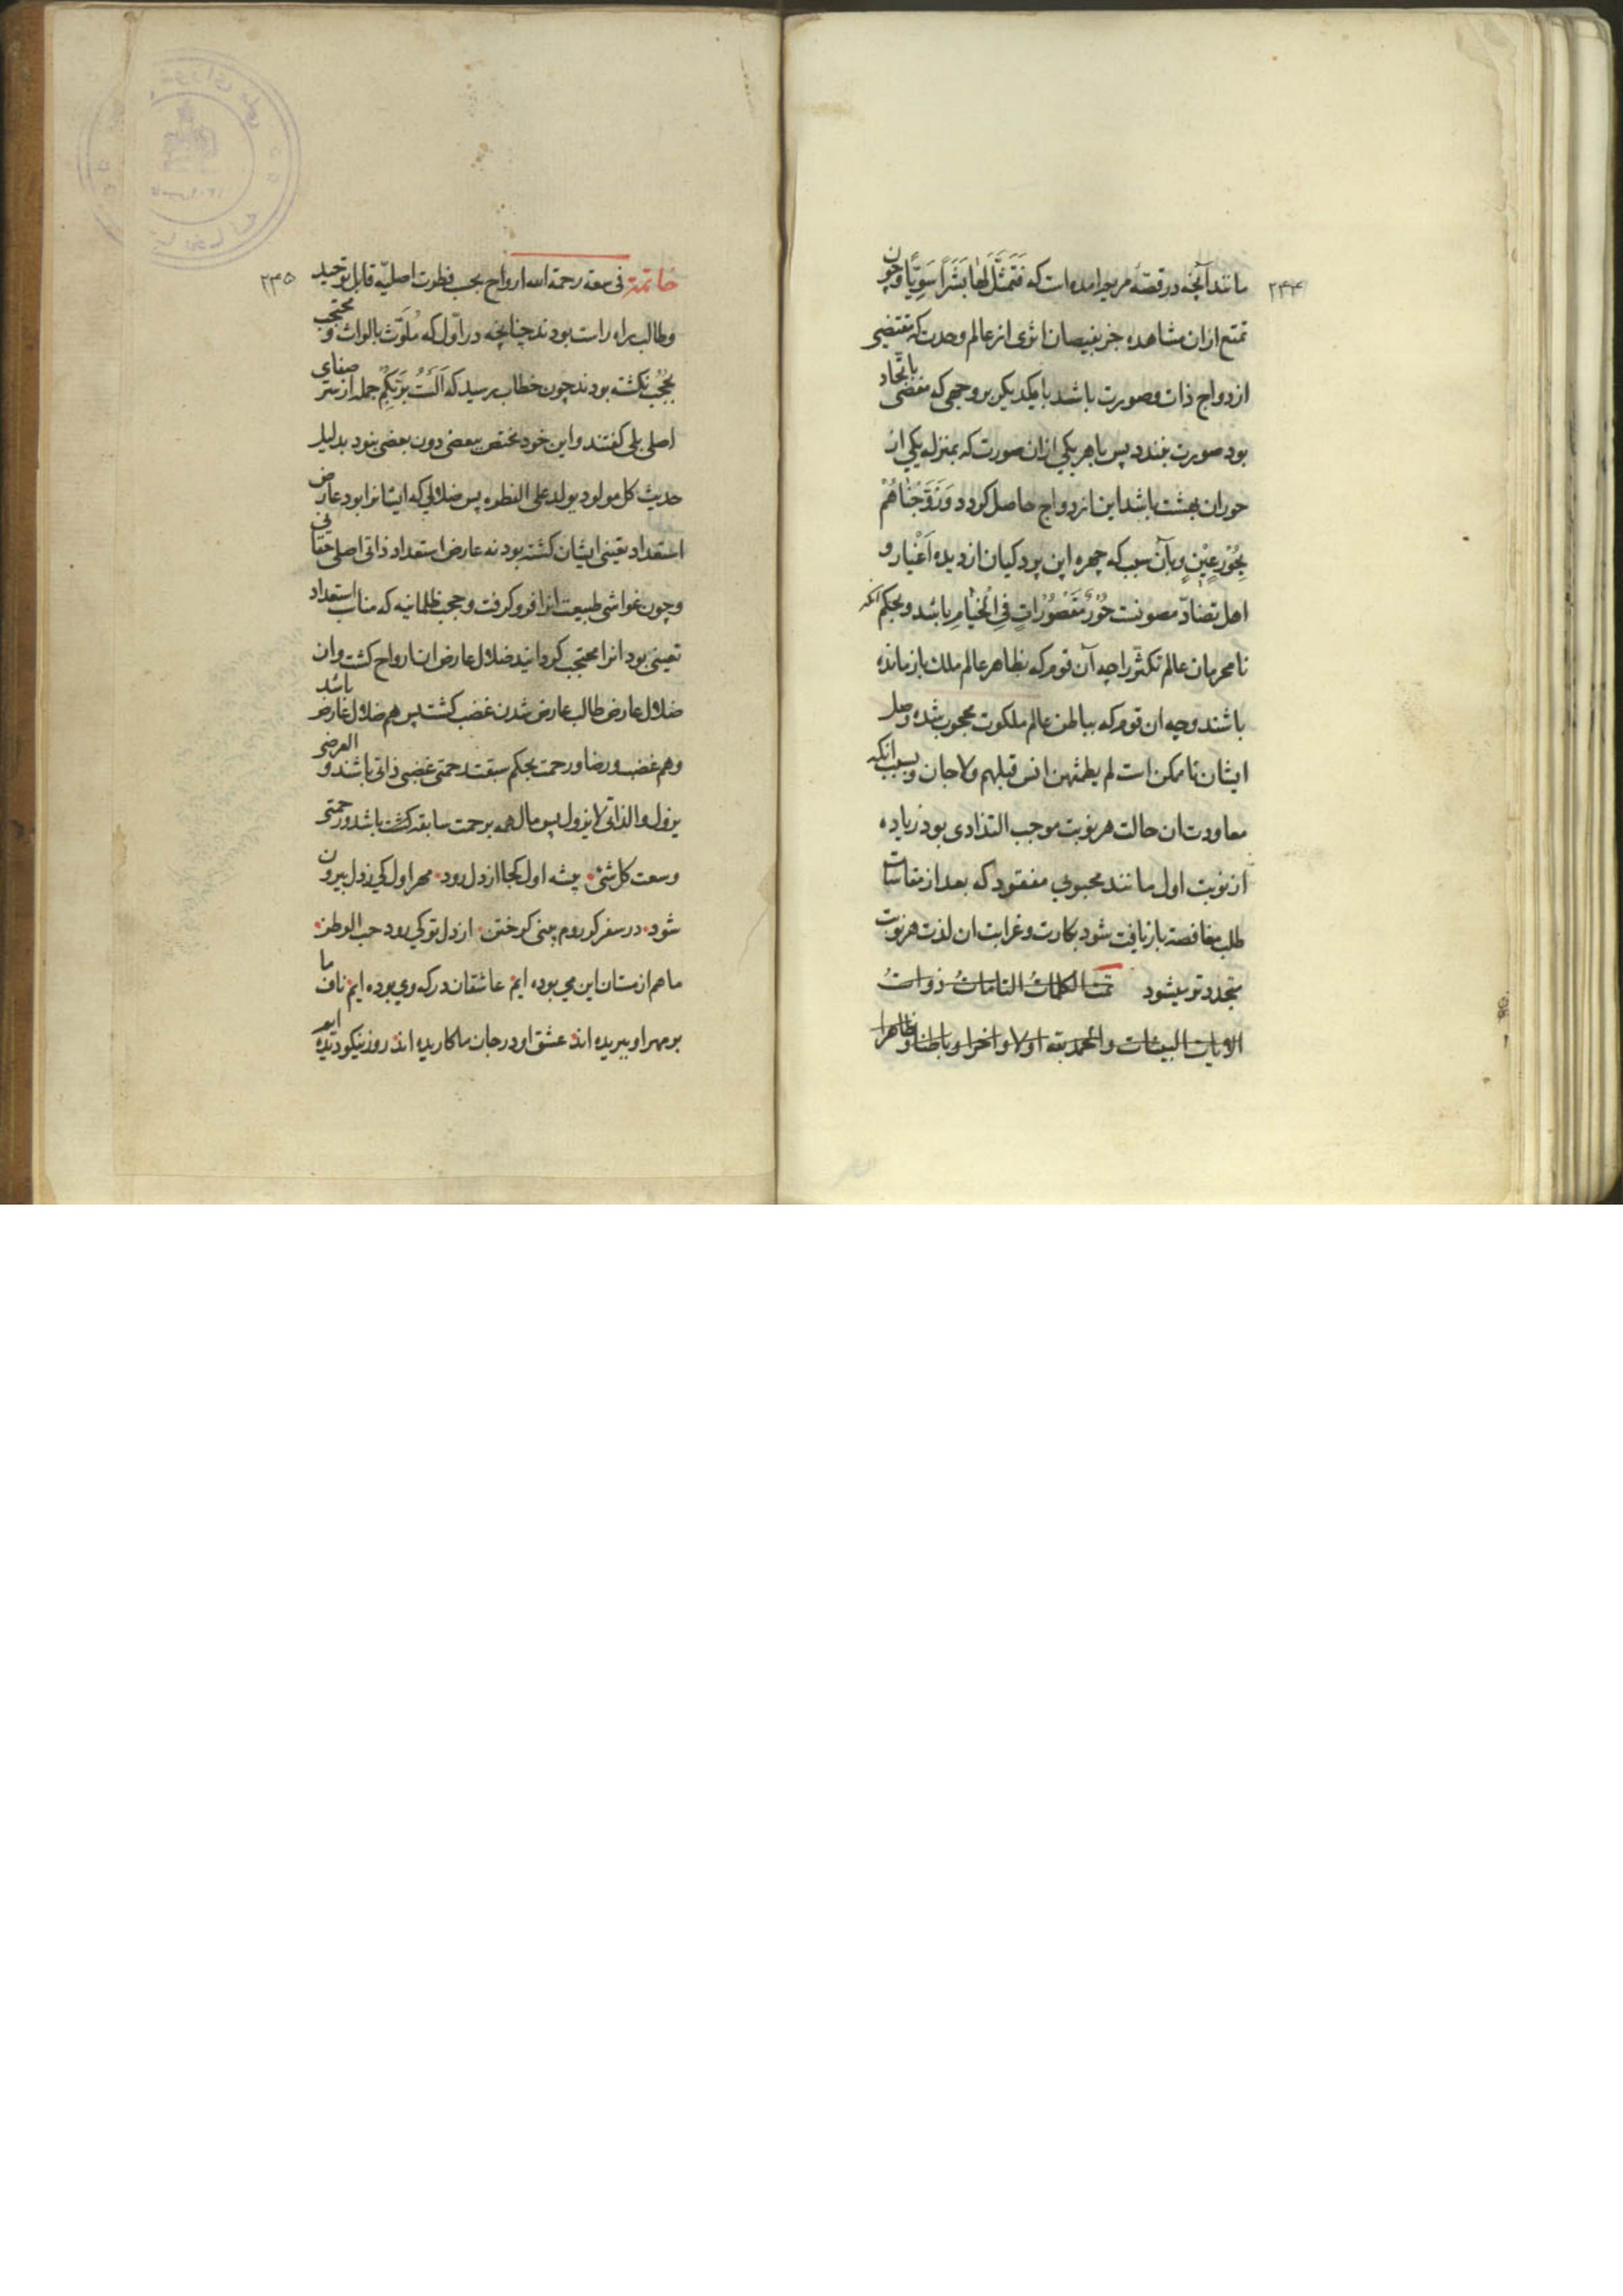 ۲۴۴
مانند آنچه در قصهٔ مریم امده است که فَتَمَثَّلَ لَهَا بَشَرًا سَوِیًّا و چون
تمتع ازان مشاهده جز بفیضان اثری از عالم وحدت که مقتضی
ازدواج ذات و صورت باشد با یکدیکر بر وجهی که مفضی باتّحاد
بود صورت نبندد پس با هر یکی ازان صورت که بمنزله یکی از
حوران بهشت باشد این ازدواج حاصل کردد وَزَوَّجْنَاهُمْ
بِحُوْرٍ عِیْنٍ و بآن سبب که چهره این پردکیان از دیده اَغْیار و
اهل تضادّ مصونست حُوْرٌ مَقْصُوْرَاتٍ فِی الْخِیَامِ باشد و بحکم آنکه
نامحرمان عالم تکثّر را چه آن قوم که بظاهر عالم ملک باز مانده
باشند و چه ان قوم که بباطن عالم ملکوت محجوب شده وصل
ایشان ناممکن است لم یطمثهن انس قبلهم ولا جان و بسبب انکه
معاودت ان حالت هر نوبت موجب التذاذی بود زیاده
از نوبت اول مانند محبوبی مفقود که بعد از مقاسات
طلب مغافصة باز یافت شود بکارت و غرابت ان لذت هر نوبت
متجدد تر میشود تمت الکلماتُ التاماتُ ذواتُ
الایات البینات والحمد لله اولا واخرا وباطنا وظاهرا
۲۴۵
خاتمة فی سعة رحمة الله ارواح بحسب فطرت اصلیّه قابل توحید
وطالب راه راست بودند چنانچه در اوّل که مُلَوَّث بالواث و محتجب
بحُجُب نکشته بودند چون خطاب رسید که اَلَسْتُ بِرَبِّکُمْ جمله از سر صفای
اصلی بلی کفتند و این خود مختص ببعضی دون بعضی نبود بدلیل
حدیث کل مولود یولد علی الفطره پس ضلالی که ایشانرا بود عارض
استعداد تعینی ایشان کشته بود نه عارض استعداد ذاتی اصلی حقانی
وچون غواشی طبیعت انرا فرو کرفت و حجب ظلمانیه که مناسب استعداد
تعینی بود انرا محتجب کردانید ضلال عارض ان ارواح کشت وان
ضلال عارض طالب عارض شدن غضب کشت پس هم ضلال عارض باشد
وهم غضب و رضا و رحمت بحکم سبقت رحمتی غضبی ذاتی باشند و العرضی
یزول والذاتی لا یزول پس مال همه برحمت سابقه کشت باشد و رحمتی
وسعت کل شئ پیشه اول کجا از دل رود مهر اول کی ز دل بیرون
شود در سفر کر روم بینی کر ختن از دل تو کی رود حب الوطن
ما هم از مستان این می بوده ایم عاشقان درکه وی بوده ایم ناف ما
بر مهر او ببریده اند عشق او در جان ما کاریده اند روز نیکو دیده ایم